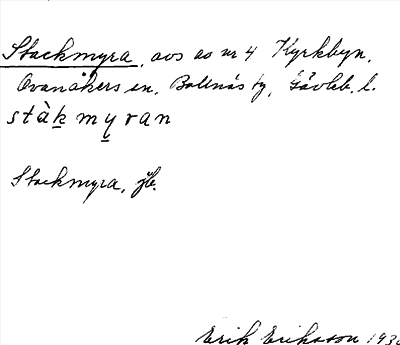 Stackmyra, avs as nr 4 Kyrkbyn,
Ovanåkers sn, Bollnäs tg, Gävleb. l.
stàk myran
Stackmyra, jb.
Erik Eriksson 193